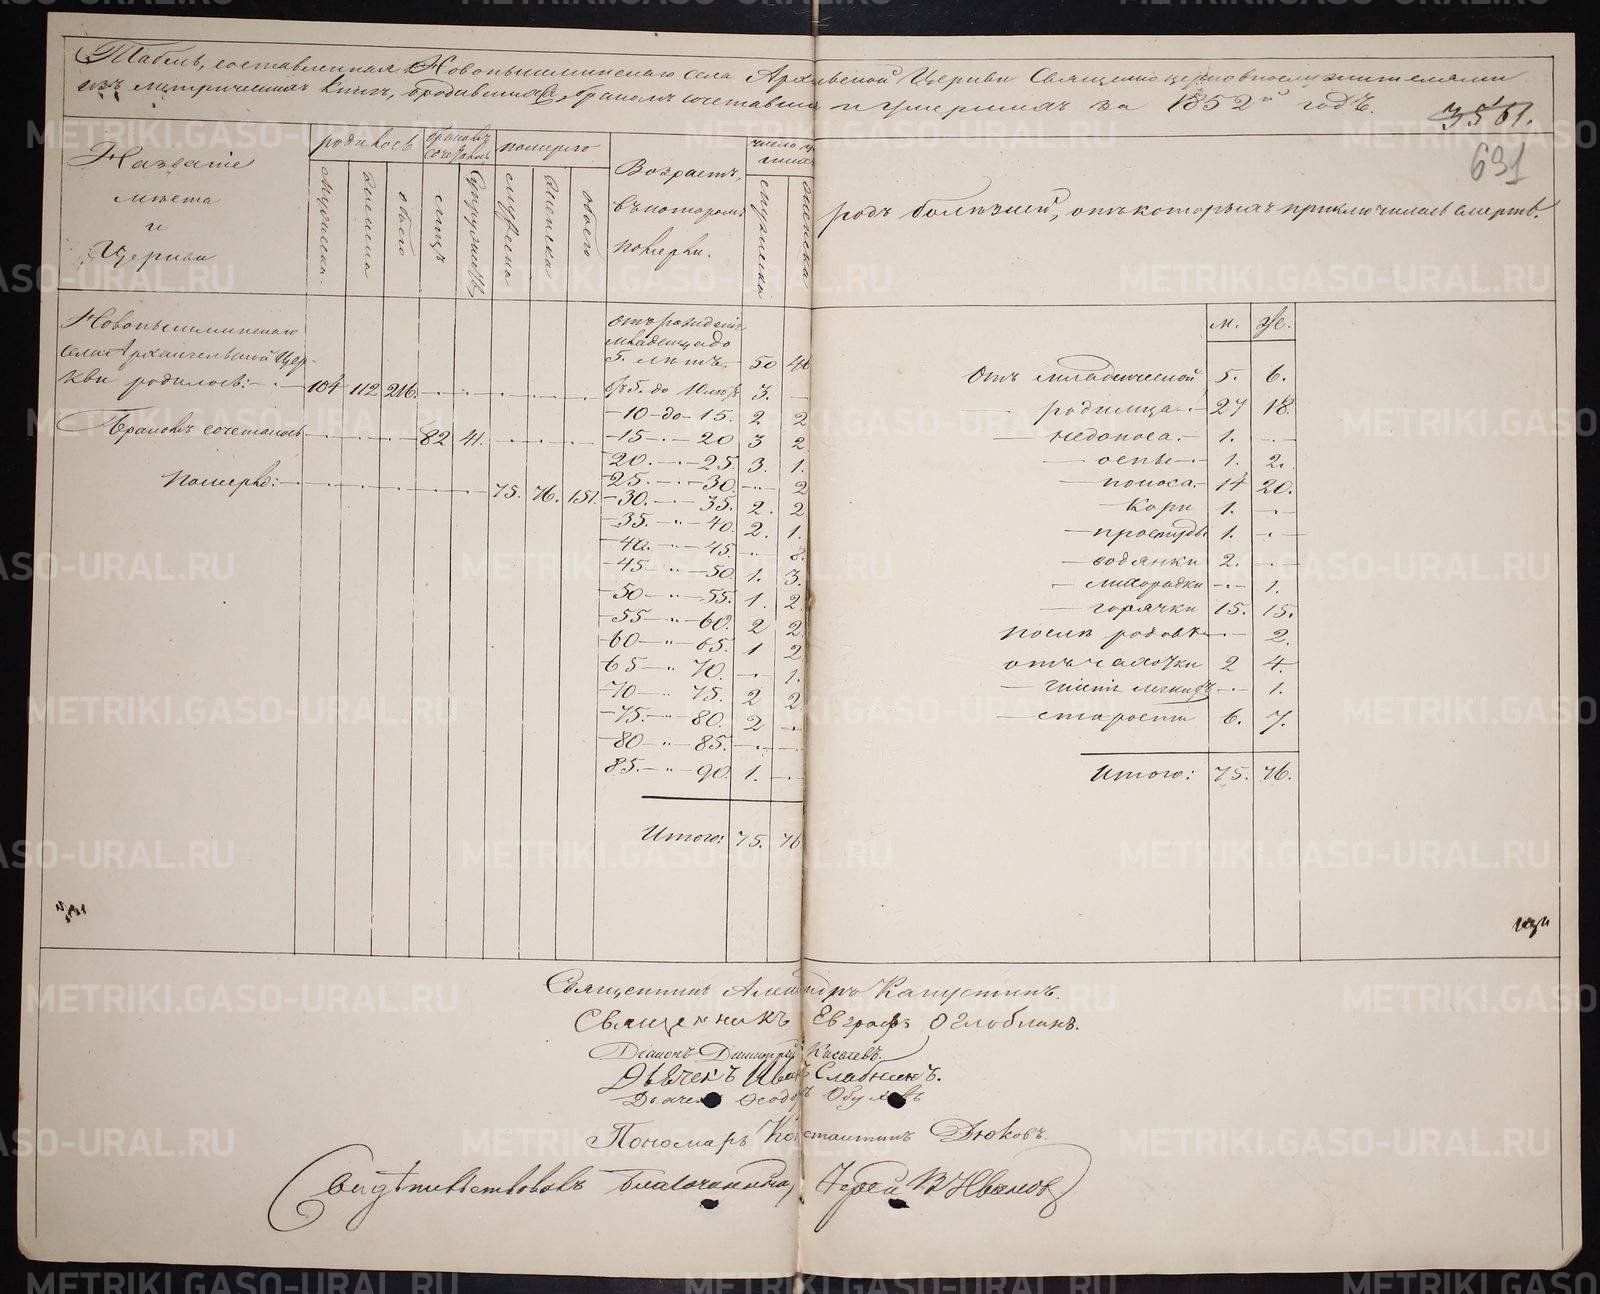 Табель, составленная Новопышминскаго села Арх-вской Церкви Священноцерковнослужителями
изъ метрическихъ книгъ, о родившихся, бракомъ сочетавшихся и умершихъ за 1852й годъ.
3561.
631
Названіе
мѣста
и
Церкви
родилось
мужеска
женска
обоего
браковъ сочеталось
лицъ
супружествъ
померло
мужеска
женска
обоего
Возрастъ,
въ которомъ
померли.
число
мужеска
женска
родъ болѣзней, отъ которыхъ приключилась смерть.
Новопышминскаго
села Архангельской Цер-
кви родилось: 104 112 216.
Бракомъ сочеталось 82 41.
Померло: 75. 76. 151.
Отъ рожденія
младенца до
5. лѣтъ 50 46
Съ 5. до 10 лѣтъ 3. —
10 до 15. 2 2
15 — 20 3 2
20. — 25. 3. 1.
25. — 30. — 2
30. — 35. 2. 2
35. " 40. 2. 1.
40. " 45. — 8.
45 " 50. 1. 3.
50 " 55. 1. 2.
55 " 60. 2 2.
60 " 65. 1 2
65 " 70. — 1.
70 " 75. 2 2
75. " 80. 2 —
80 " 85. — —
85. " 90. 1. —
Итого: 75. 76
м. ж.
Отъ младенческой 5. 6.
— родимца 27 18.
— недоноса. 1. —
— оспы 1. 2.
— поноса. 14 20.
— кори 1. —
— простуды 1. —
— водянки 2. —
— лихорадки — 1.
— горячки 15. 15.
послѣ родовъ — 2.
отъ чахотки 2 4.
— — 1.
— старости 6. 7.
Итого: 75. 76.
Священникъ Александръ Капустинъ.
Священникъ Евграфъ Оглоблинъ.
Діаконъ Димитрій
Дьячекъ Иванъ Славнинъ.
Дьячекъ Ѳеодоръ
Пономарь Константинъ Дюковъ.
Свидѣтельствовалъ Благочинный, Іерей В Ивановъ